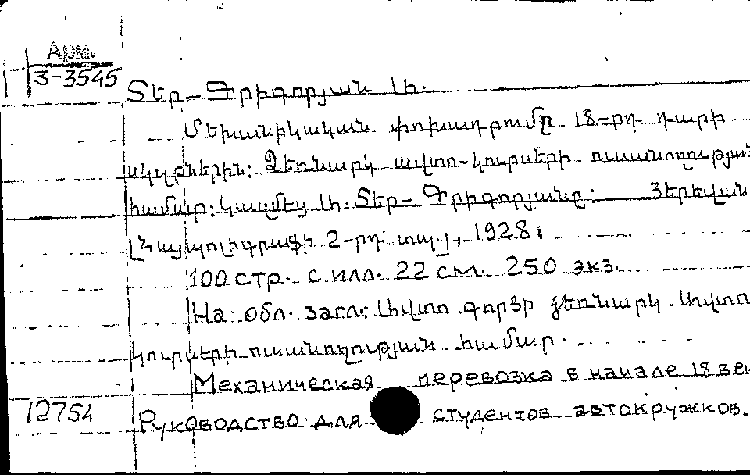 Арм.
3-3545
Տեր-Գրիգորյան Ա.
Մեխանիկական փոխադրումը 18-րդ դարի
սկզբներին: Ձեռնարկ ավտո-կուրսերի ուսանողության
համար: Կազմեց Ա. Տեր-Գրիգորյանը: Յերեվան
2-րդ տպ., 1928:
100 стр. с илл. 22 см. 250 экз.
На обл. загл: Ավտո գործի ձեռնարկ ավտո
կուրսերի ուսանողության համար.
Механическая перевозка в начале 18 ве
12754 Руководство для студентов автокружков.